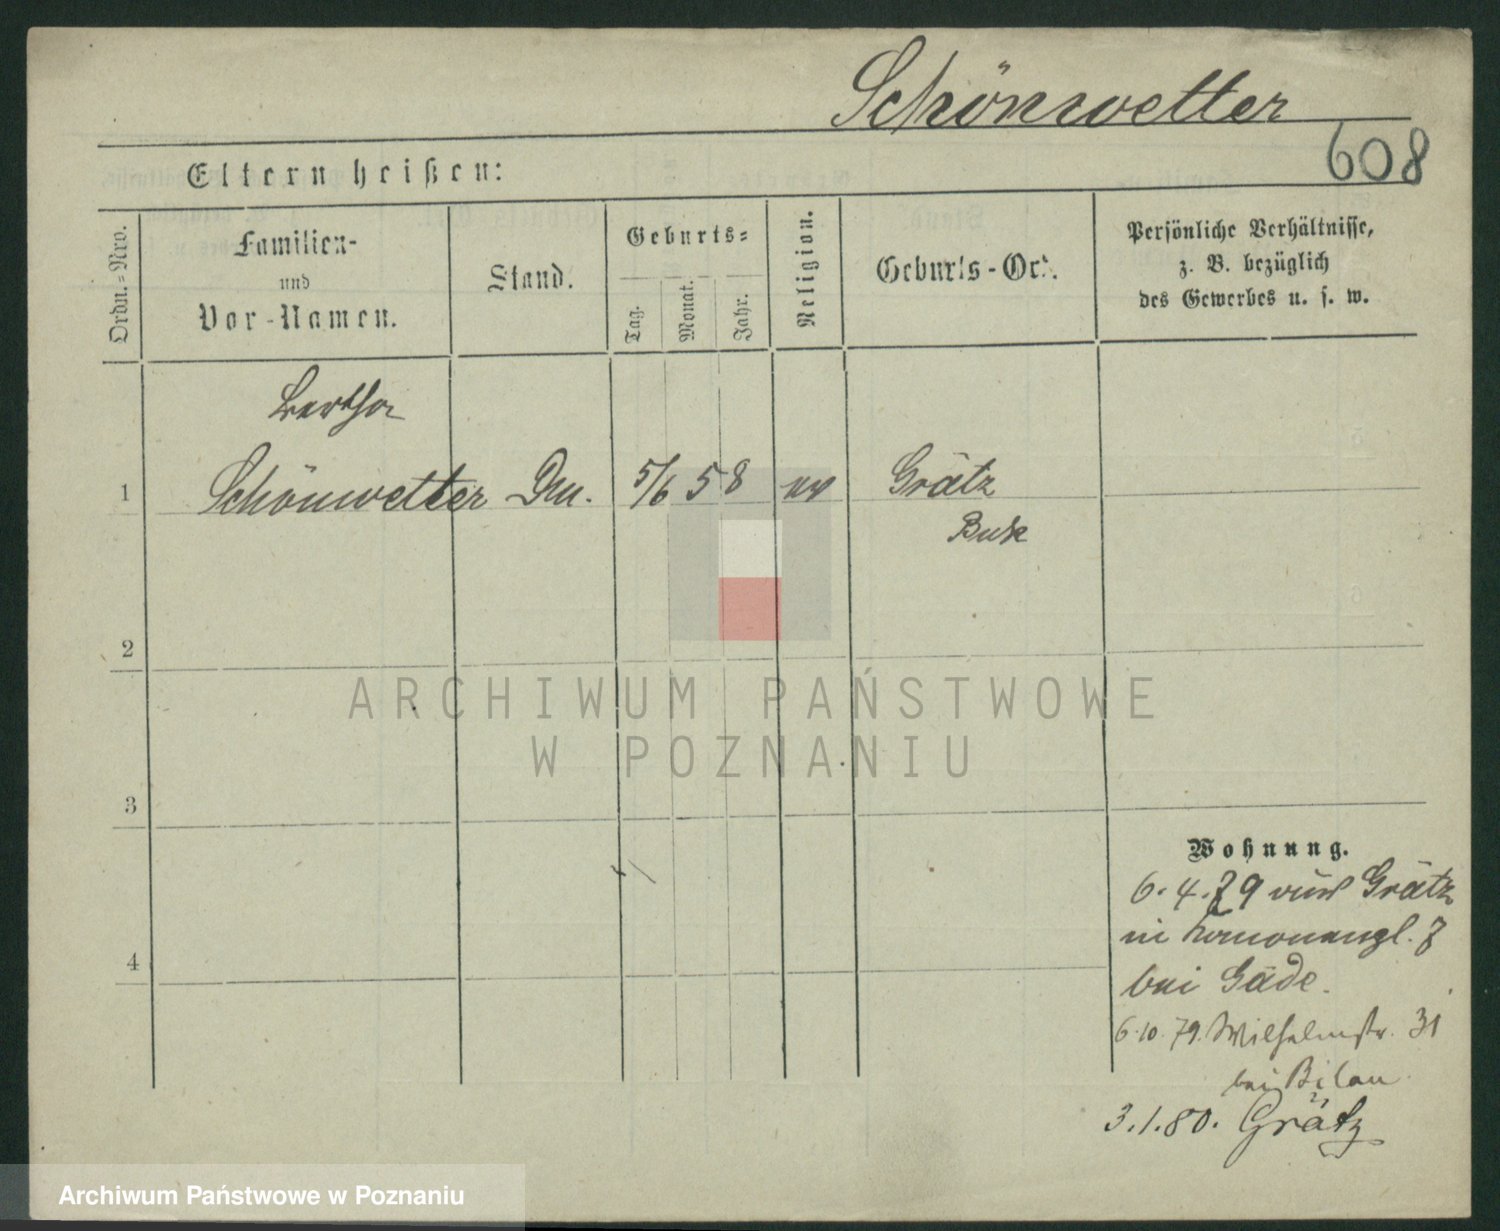 Schönwetter
608
Eltern heißen:
Ordn.-Nro.
Familien-
und
Vor-Namen.
Stand.
Geburts-
Tag.
Monat.
Jahr.
Religion.
Geburts-Ort.
Persönliche Verhältnisse,
z. B. bezüglich
des Gewerbes u. s. w.
Bertha
1 Schönwetter 5/6 58 ev Grätz
Buk
2
ARCHIWUM PAŃSTWOWE
W POZNANIU
3
Wohnung.
6.4.79 aus Grätz
in
4
bei Gäde.
6.10.79. Wilhelmstr. 31
bei Bilau
3.1.80. Grätz
Archiwum Państwowe w Poznaniu